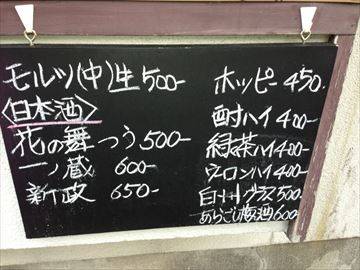 モルツ(中)生 500-
〈日本酒〉
花の舞 つう 500-
一ノ蔵 600-
新政 650-
ホッピー 450-
酎ハイ 400-
緑茶ハイ 400-
ウーロンハイ 400-
白州グラス 500-
あらごし梅酒 600-